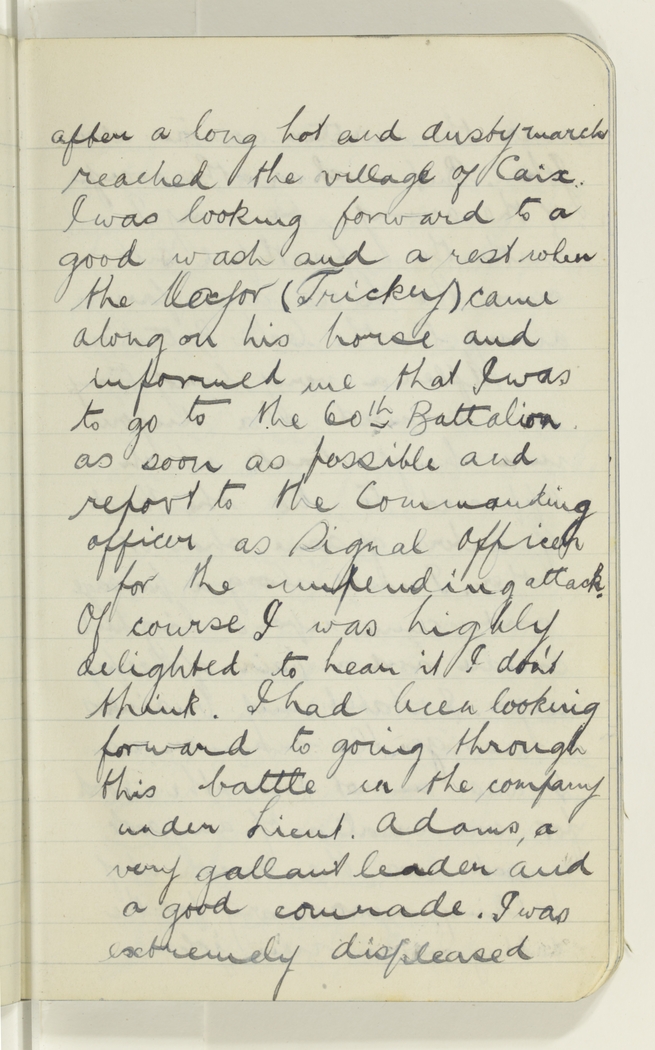 after a long hot and dusty march
reached the village of Caix.
I was looking forward to a
good wash and a rest when
the Major (Trickey) came
along on his horse and
informed me that I was
to go to the 60th Battalion.
as soon as possible and
report to the Commanding
officer as Signal Officer
for the impending attack.
Of course I was highly
delighted to hear it! I don't
think. I had been looking
forward to going through
this battle in the company
under Lieut. Adams, a
very gallant leader and
a good comrade. I was
extremely displeased